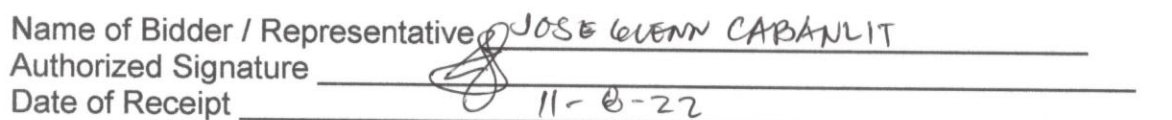 Name of Bidder / Representative JOSE GLENN CABANLIT
Authorized Signature
Date of Receipt 11-8-22